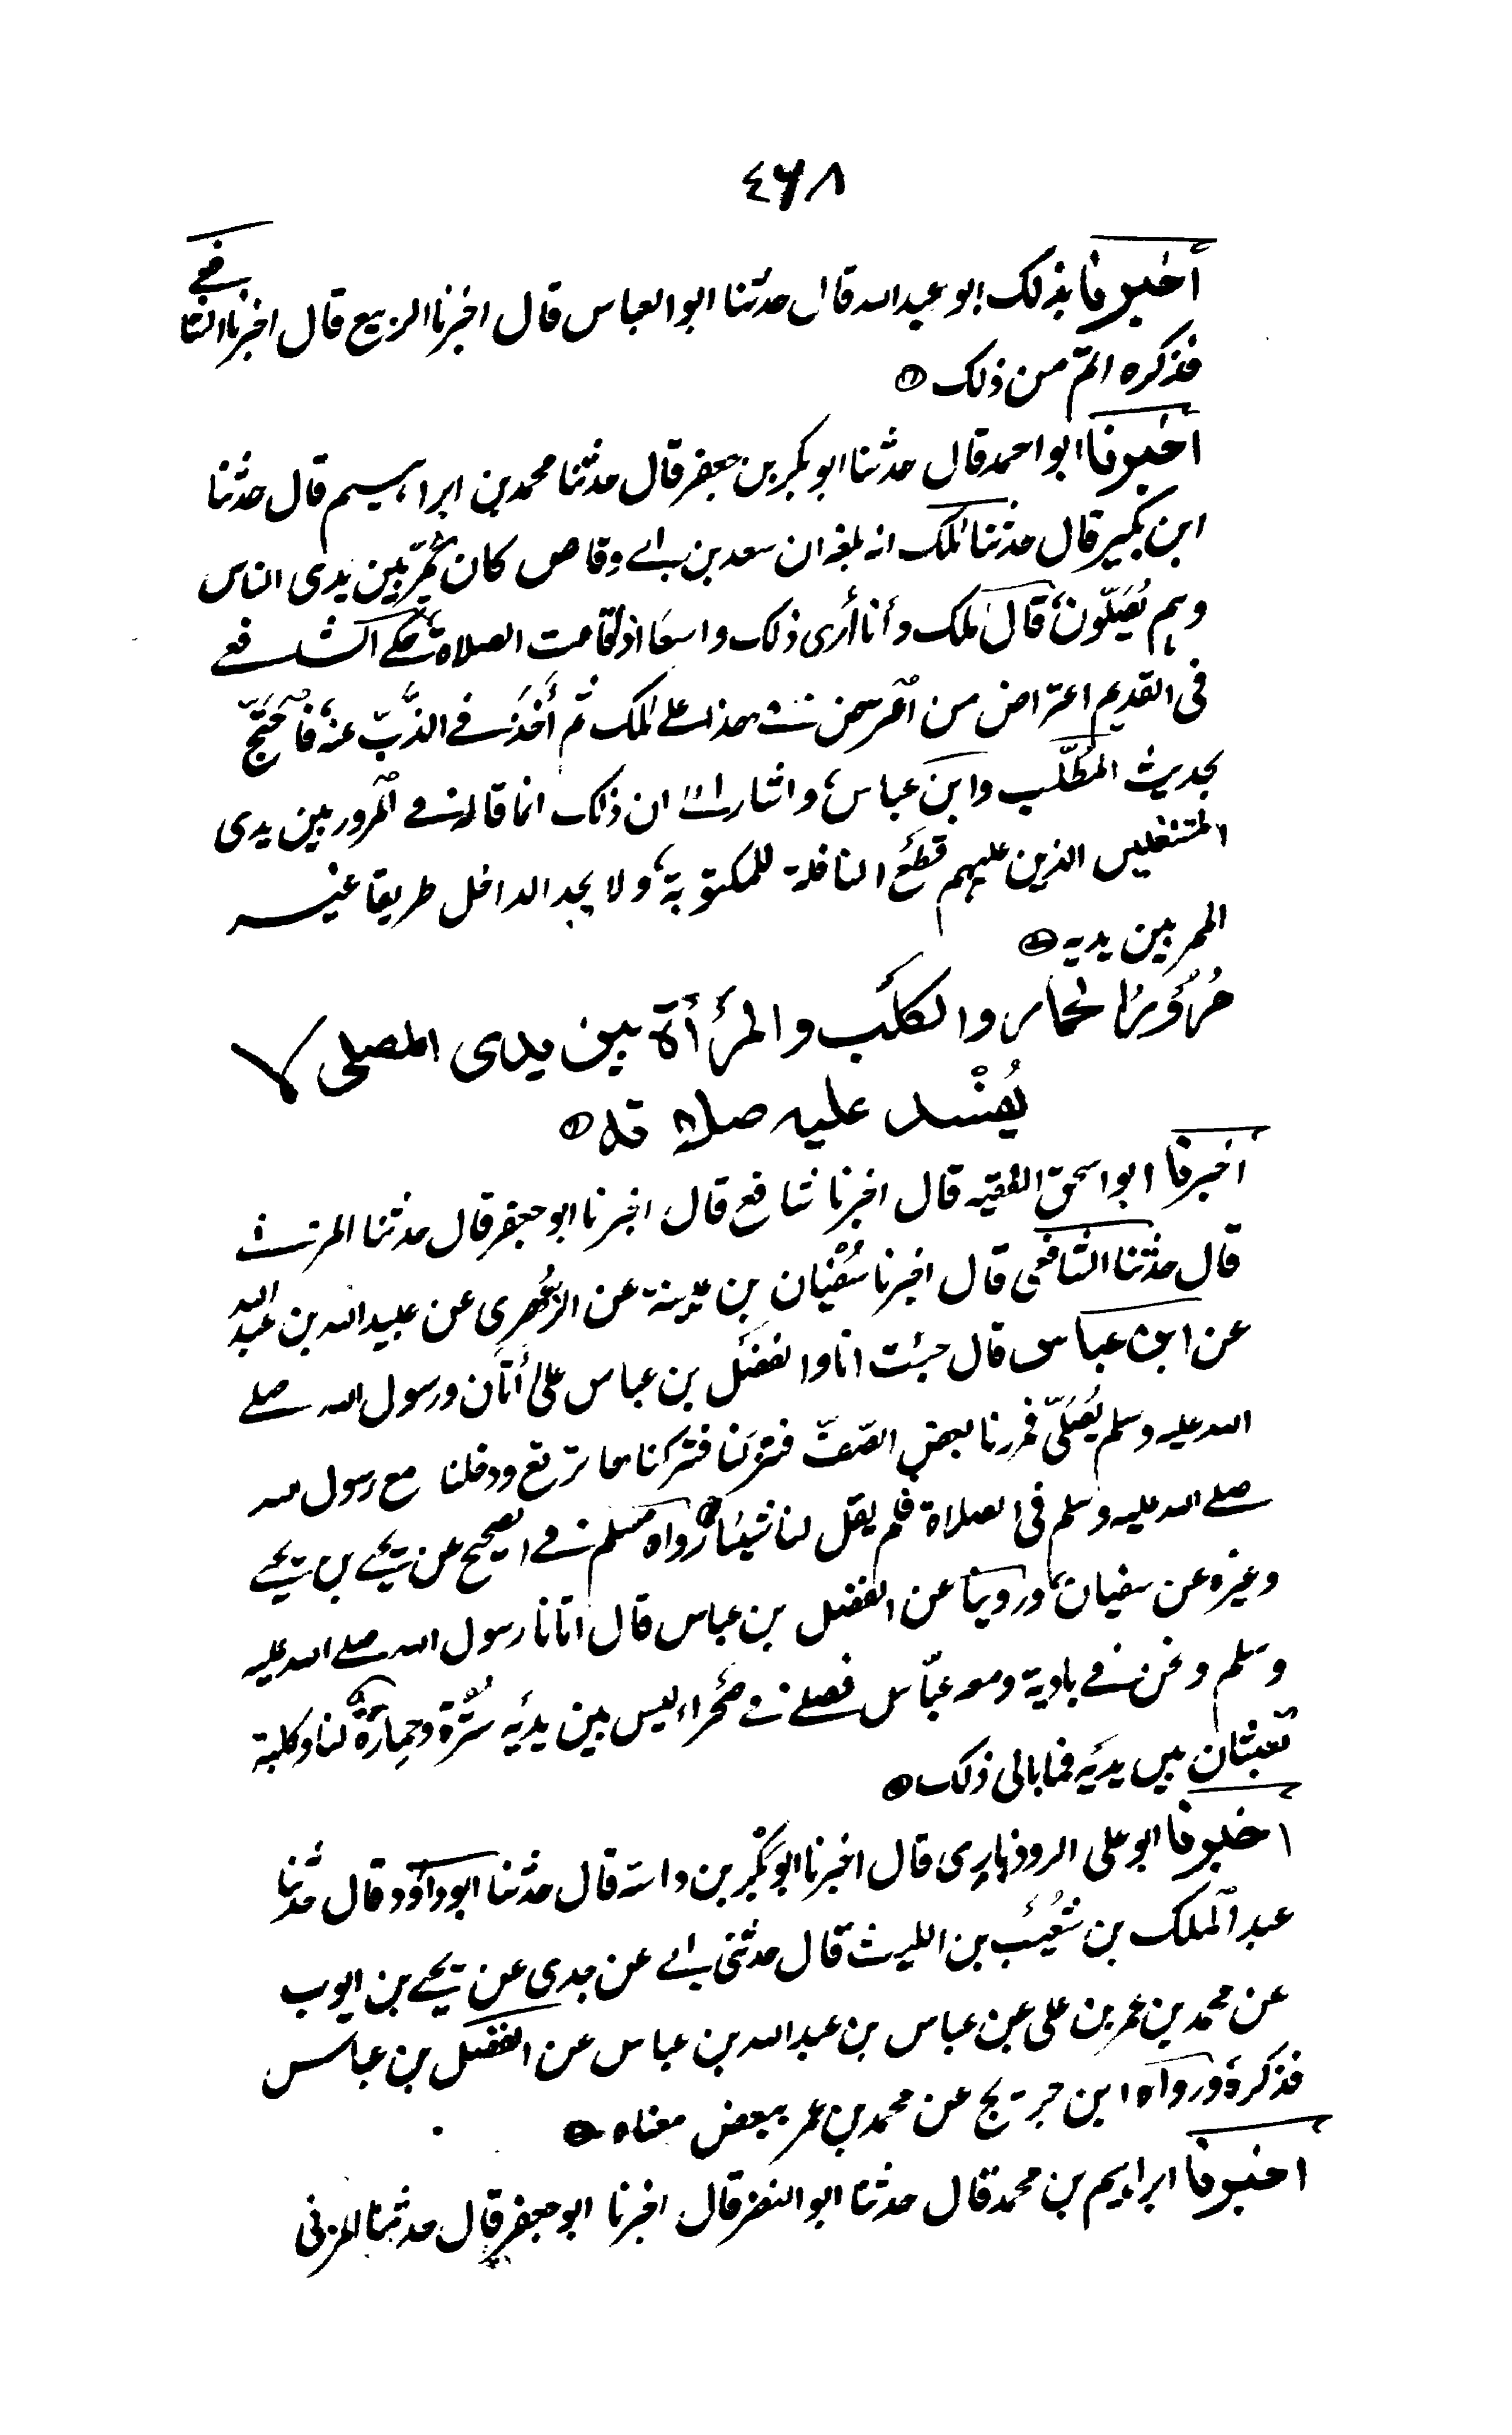 ٤٦٨
أخبرنا بذلك ابو عبد الله قال حدثنا ابو العباس قال اخبرنا الربيع قال اخبرنا الشافعي
فذكره اتم من ذلك
أخبرنا ابو احمد قال حدثنا ابو بكر بن جعفر قال حدثنا محمد بن ابراهيم قال حدثنا
ابن بكير قال حدثنا ملك انه بلغه ان سعد بن ابي وقاص كان يمرّ بين يدى الناس
وهم يُصَلّون، قال ملك وأنا أرى ذلك واسعًا اذا قامت الصلاة، حكى الشافعي
فى القديم اعتراض من اعترض هذا على ملك ثم أخذ في الذَّبّ عنه، فاحتجّ
بحديث المطّلب وابن عباس، واشار الى ان ذلك انما قاله في المرور بين يدى
المتنفلين الذين عليهم قطع النافلة للمكتوبة، ولا يجد الداخل طريقا غير
الممر بين يديه
مُرُوْرُ الحمار والكلب والمرأة بين يدى المصلى لا
يُفْسد عليه صلاته
أخبرنا ابو اسحق الفقيه قال اخبرنا شافع قال اخبرنا ابو جعفر قال حدثنا المزني
قال حدثنا الشافعى قال اخبرنا سُفْيان بن عيينة عن الزُّهرى عن عبيد الله بن عبد الله
عن ابن عباس قال جئت انا والفضل بن عباس على أتان ورسول الله صلى
الله عليه وسلم يُصَلّى فمررنا ببعض الصّفّ فنزلنا فتركناها ترتع ودخلنا مع رسول الله
صلى الله عليه وسلم فى الصلاة فلم يقل لنا شيئا رواه مسلم في الصحيح عن يحيى بن يحيى
وغيره عن سفيان، وروينا عن الفضل بن عباس قال اتانا رسول الله صلى الله عليه
وسلم ونحن في بادية ومعه عبّاس فصلى في صحراء ليس بين يديه سُتْرة وحمارة لنا وكلبة
تعبثان بين يديه فما بالى ذلك
أخبرنا ابو على الروذباري قال اخبرنا ابو بكر بن داسة قال حدثنا ابو داود قال حدثنا
عبد الملك بن شعيب بن الليث قال حدثنى ابي عن جدى عن يحيى بن ايوب
عن محمد بن عمر بن على عن عباس بن عبد الله بن عباس عن الفضل بن عباس
فذكره ورواه ابن جريج عن محمد بن عمر ببعض معناه
اخبرنا ابراهيم بن محمد قال حدثنا ابو النضر قال اخبرنا ابو جعفر قال حدثنا المزنى